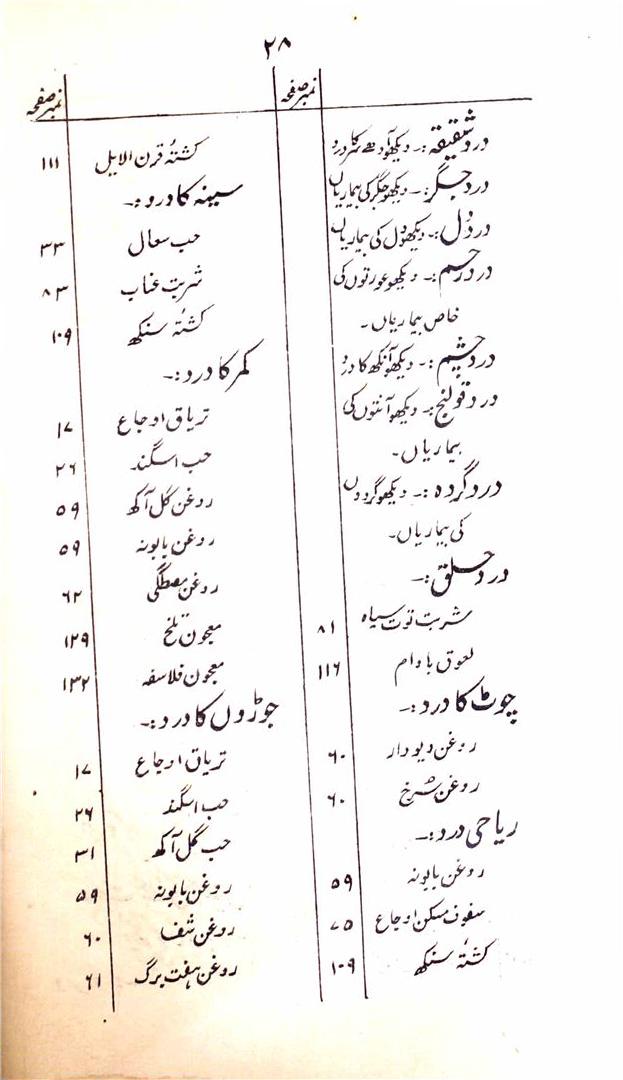 ۲۸
نمبر صفحہ
درد شقیقہ:۔ دیکھو آدھے سر کا درد
درد جگر:۔ دیکھو جگر کی بیماریاں
درد دل:۔ دیکھو دل کی بیماریاں
درد رحم:۔ دیکھو عورتوں کی
خاص بیماریاں۔
درد چشم:۔ دیکھو آنکھ کا درد
درد قولنج:۔ دیکھو آنتوں کی
بیماریاں۔
درد گردہ:۔ دیکھو گردوں
کی بیماریاں۔
درد حلق:۔
شربت توت سیاہ ۸۱
لعوق بادام ۱۱۶
چوٹ کا درد:۔
روغن دیودار ۶۰
روغن سرخ ۶۰
ریاحی درد:۔
روغن بابونہ ۵۹
سفوف مسکن اوجاع ۷۵
کشتۂ سنکھ ۱۰۹
نمبر صفحہ
کشتۂ قرن الایل ۱۱۱
سینہ کا درد:۔
حب سعال ۳۳
شربت عناب ۸۳
کشتۂ سنکھ ۱۰۹
کمر کا درد:۔
تریاق اوجاع ۱۷
حب اسگند ۲۶
روغن گل آکھ ۵۹
روغن بابونہ ۵۹
روغن مصطگی ۶۲
معجون تلخ ۱۲۹
معجون فلاسفہ ۱۳۲
جوڑوں کا درد:۔
تریاق اوجاع ۱۷
حب اسگند ۲۶
حب گل آکھ ۳۱
روغن بابونہ ۵۹
روغن شفا ۶۰
روغن ہفت برگ ۶۱